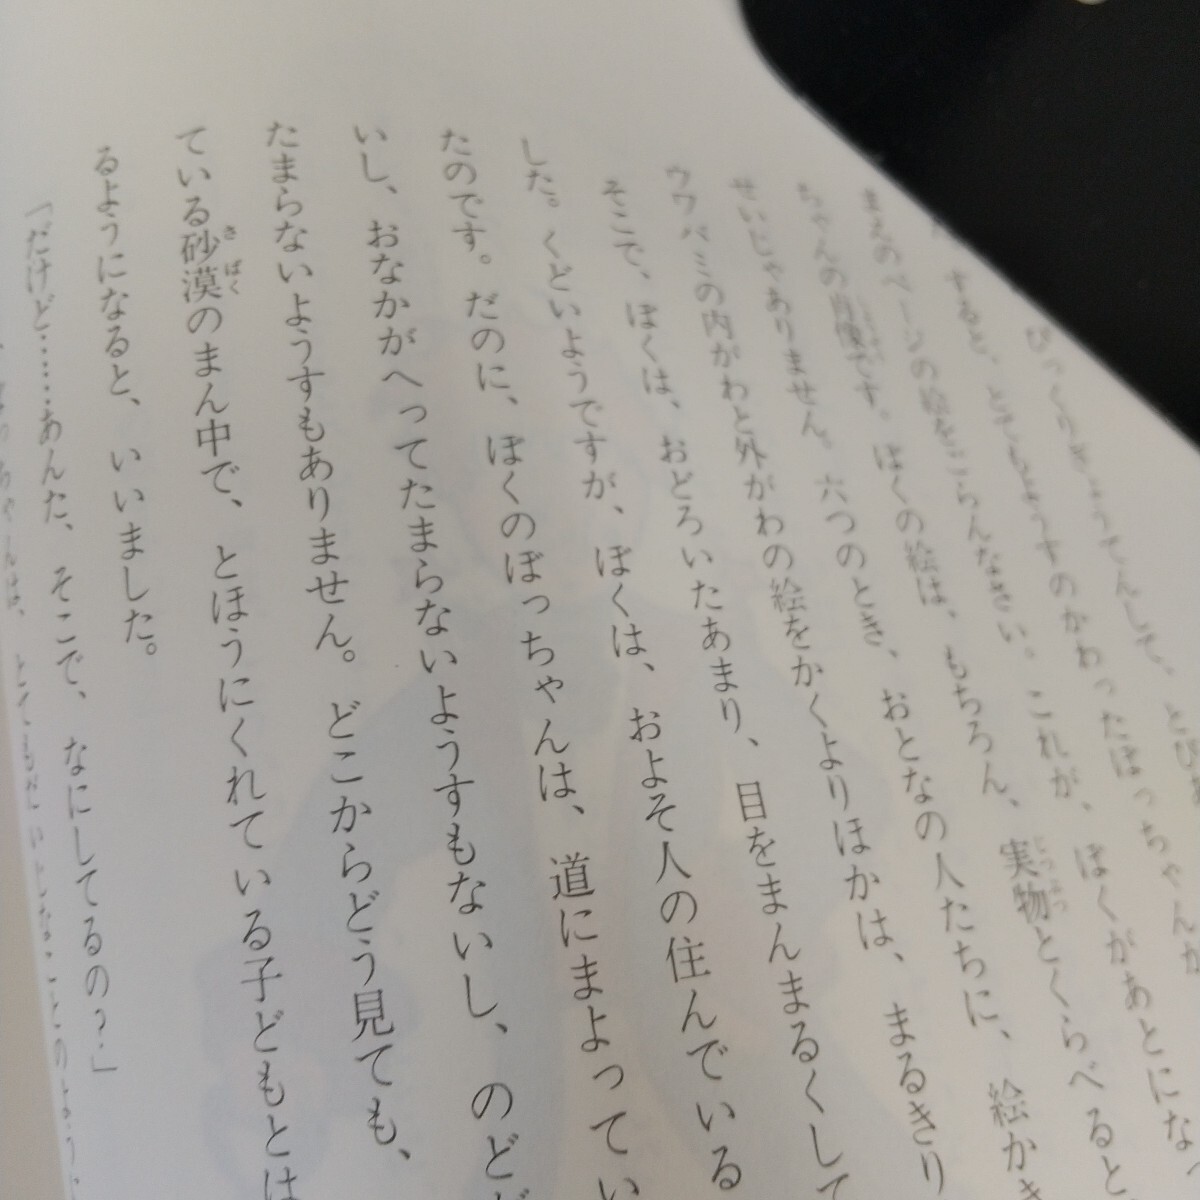 びっくりぎょうてんして、とび
すると、とてもようすのかわったぼっちゃんが
まえのページの絵をごらんなさい。これが、ぼくがあとにな
ちゃんの肖像です。ぼくの絵は、もちろん、実物とくらべると
せいじゃありません。六つのとき、おとなの人たちに、絵かき
ウワバミの内がわと外がわの絵をかくよりほかは、まるきり
そこで、ぼくは、おどろいたあまり、目をまんまるくして
した。くどいようですが、ぼくは、およそ人の住んでいる
たのです。だのに、ぼくのぼっちゃんは、道にまよってい
いし、おなかがへってたまらないようすもないし、のど
たまらないようすもありません。どこからどう見ても、
ている砂漠のまん中で、とほうにくれている子どもとは
るようになると、いいました。
「だけど……あんた、そこで、なにしてるの？」